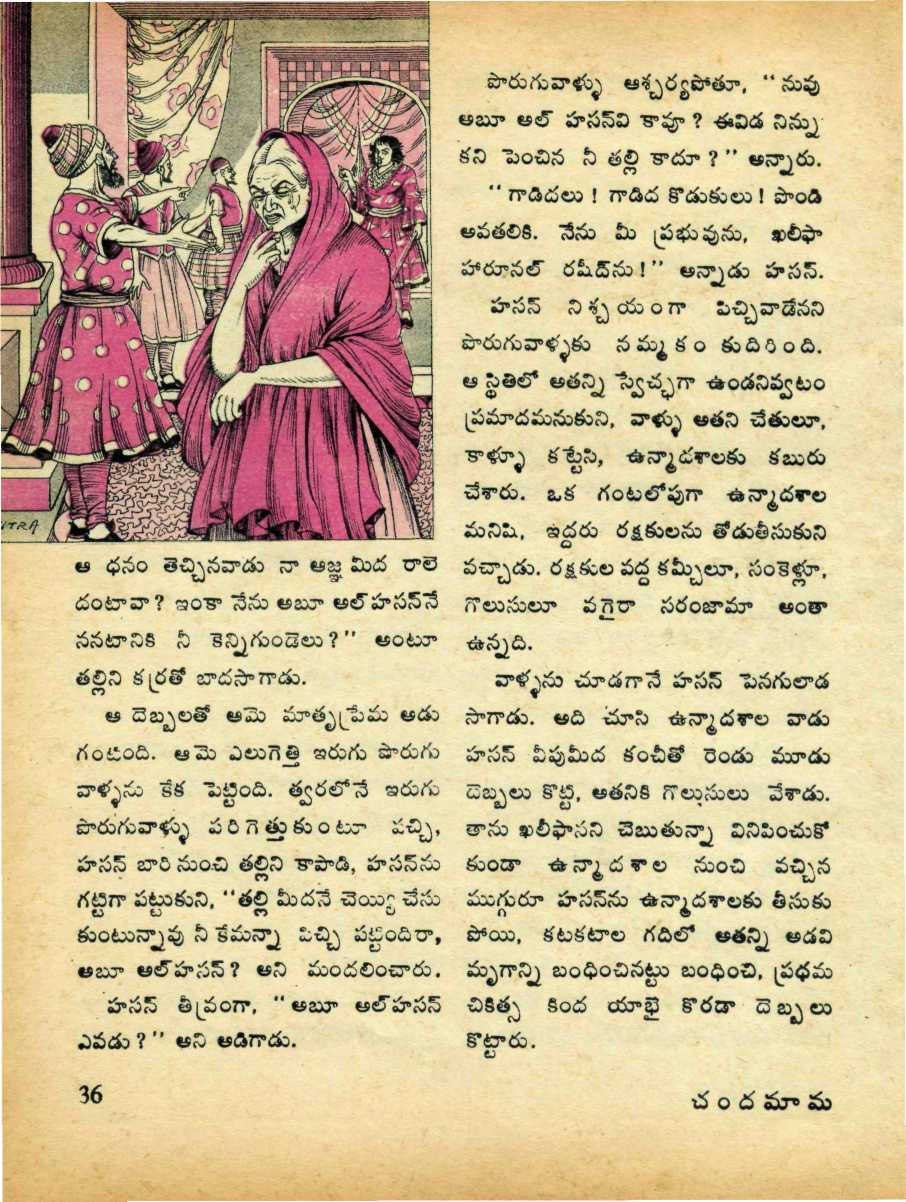 ITRA
ఆ ధనం తెచ్చినవాడు నా ఆజ్ఞ మీద రాలె
దంటావా? ఇంకా నేను అబూ అల్ హసన్‌నే
ననటానికి నీ కెన్నిగుండెలు?" అంటూ
తల్లిని కర్రతో బాదసాగాడు.
ఆ దెబ్బలతో ఆమె మాతృప్రేమ అడు
గంటింది. ఆమె ఎలుగెత్తి ఇరుగు పొరుగు
వాళ్ళను కేక పెట్టింది. త్వరలోనే ఇరుగు
పొరుగువాళ్ళు పరిగెత్తుకుంటూ వచ్చి,
హసన్ బారి నుంచి తల్లిని కాపాడి, హసన్‌ను
గట్టిగా పట్టుకుని, "తల్లి మీదనే చెయ్యి చేసు
కుంటున్నావు నీ కేమన్నా పిచ్చి పట్టిందిరా,
అబూ అల్ హసన్? అని మందలించారు.
హసన్ తీవ్రంగా, "అబూ అల్ హసన్
ఎవడు?" అని అడిగాడు.
పొరుగువాళ్ళు ఆశ్చర్యపోతూ, "నువు
అబూ అల్ హసన్‌వి కావూ? ఈవిడ నిన్ను
కని పెంచిన నీ తల్లి కాదూ?" అన్నారు.
"గాడిదలు! గాడిద కొడుకులు! పొండి
అవతలికి. నేను మీ ప్రభువును, ఖలీఫా
హారూనల్ రషీద్‌ను!" అన్నాడు హసన్.
హసన్ నిశ్చయంగా పిచ్చివాడేనని
పొరుగువాళ్ళకు నమ్మకం కుదిరింది.
ఆ స్థితిలో అతన్ని స్వేచ్ఛగా ఉండనివ్వటం
ప్రమాదమనుకుని, వాళ్ళు అతని చేతులూ,
కాళ్ళూ కట్టేసి, ఉన్మాదశాలకు కబురు
చేశారు. ఒక గంటలోపుగా ఉన్మాదశాల
మనిషి, ఇద్దరు రక్షకులను తోడుతీసుకుని
వచ్చాడు. రక్షకుల వద్ద కమ్చీలూ, సంకెళ్లూ,
గొలుసులూ వగైరా సరంజామా అంతా
ఉన్నది.
వాళ్ళను చూడగానే హసన్ పెనగులాడ
సాగాడు. అది చూసి ఉన్మాదశాల వాడు
హసన్ వీపుమీద కంచీతో రెండు మూడు
దెబ్బలు కొట్టి, అతనికి గొలుసులు వేశాడు.
తాను ఖలీఫానని చెబుతున్నా వినిపించుకో
కుండా ఉన్మాదశాల నుంచి వచ్చిన
ముగ్గురూ హసన్‌ను ఉన్మాదశాలకు తీసుకు
పోయి, కటకటాల గదిలో అతన్ని అడవి
మృగాన్ని బంధించినట్టు బంధించి, ప్రథమ
చికిత్స కింద యాభై కొరడా దెబ్బలు
కొట్టారు.
36
చందమామ